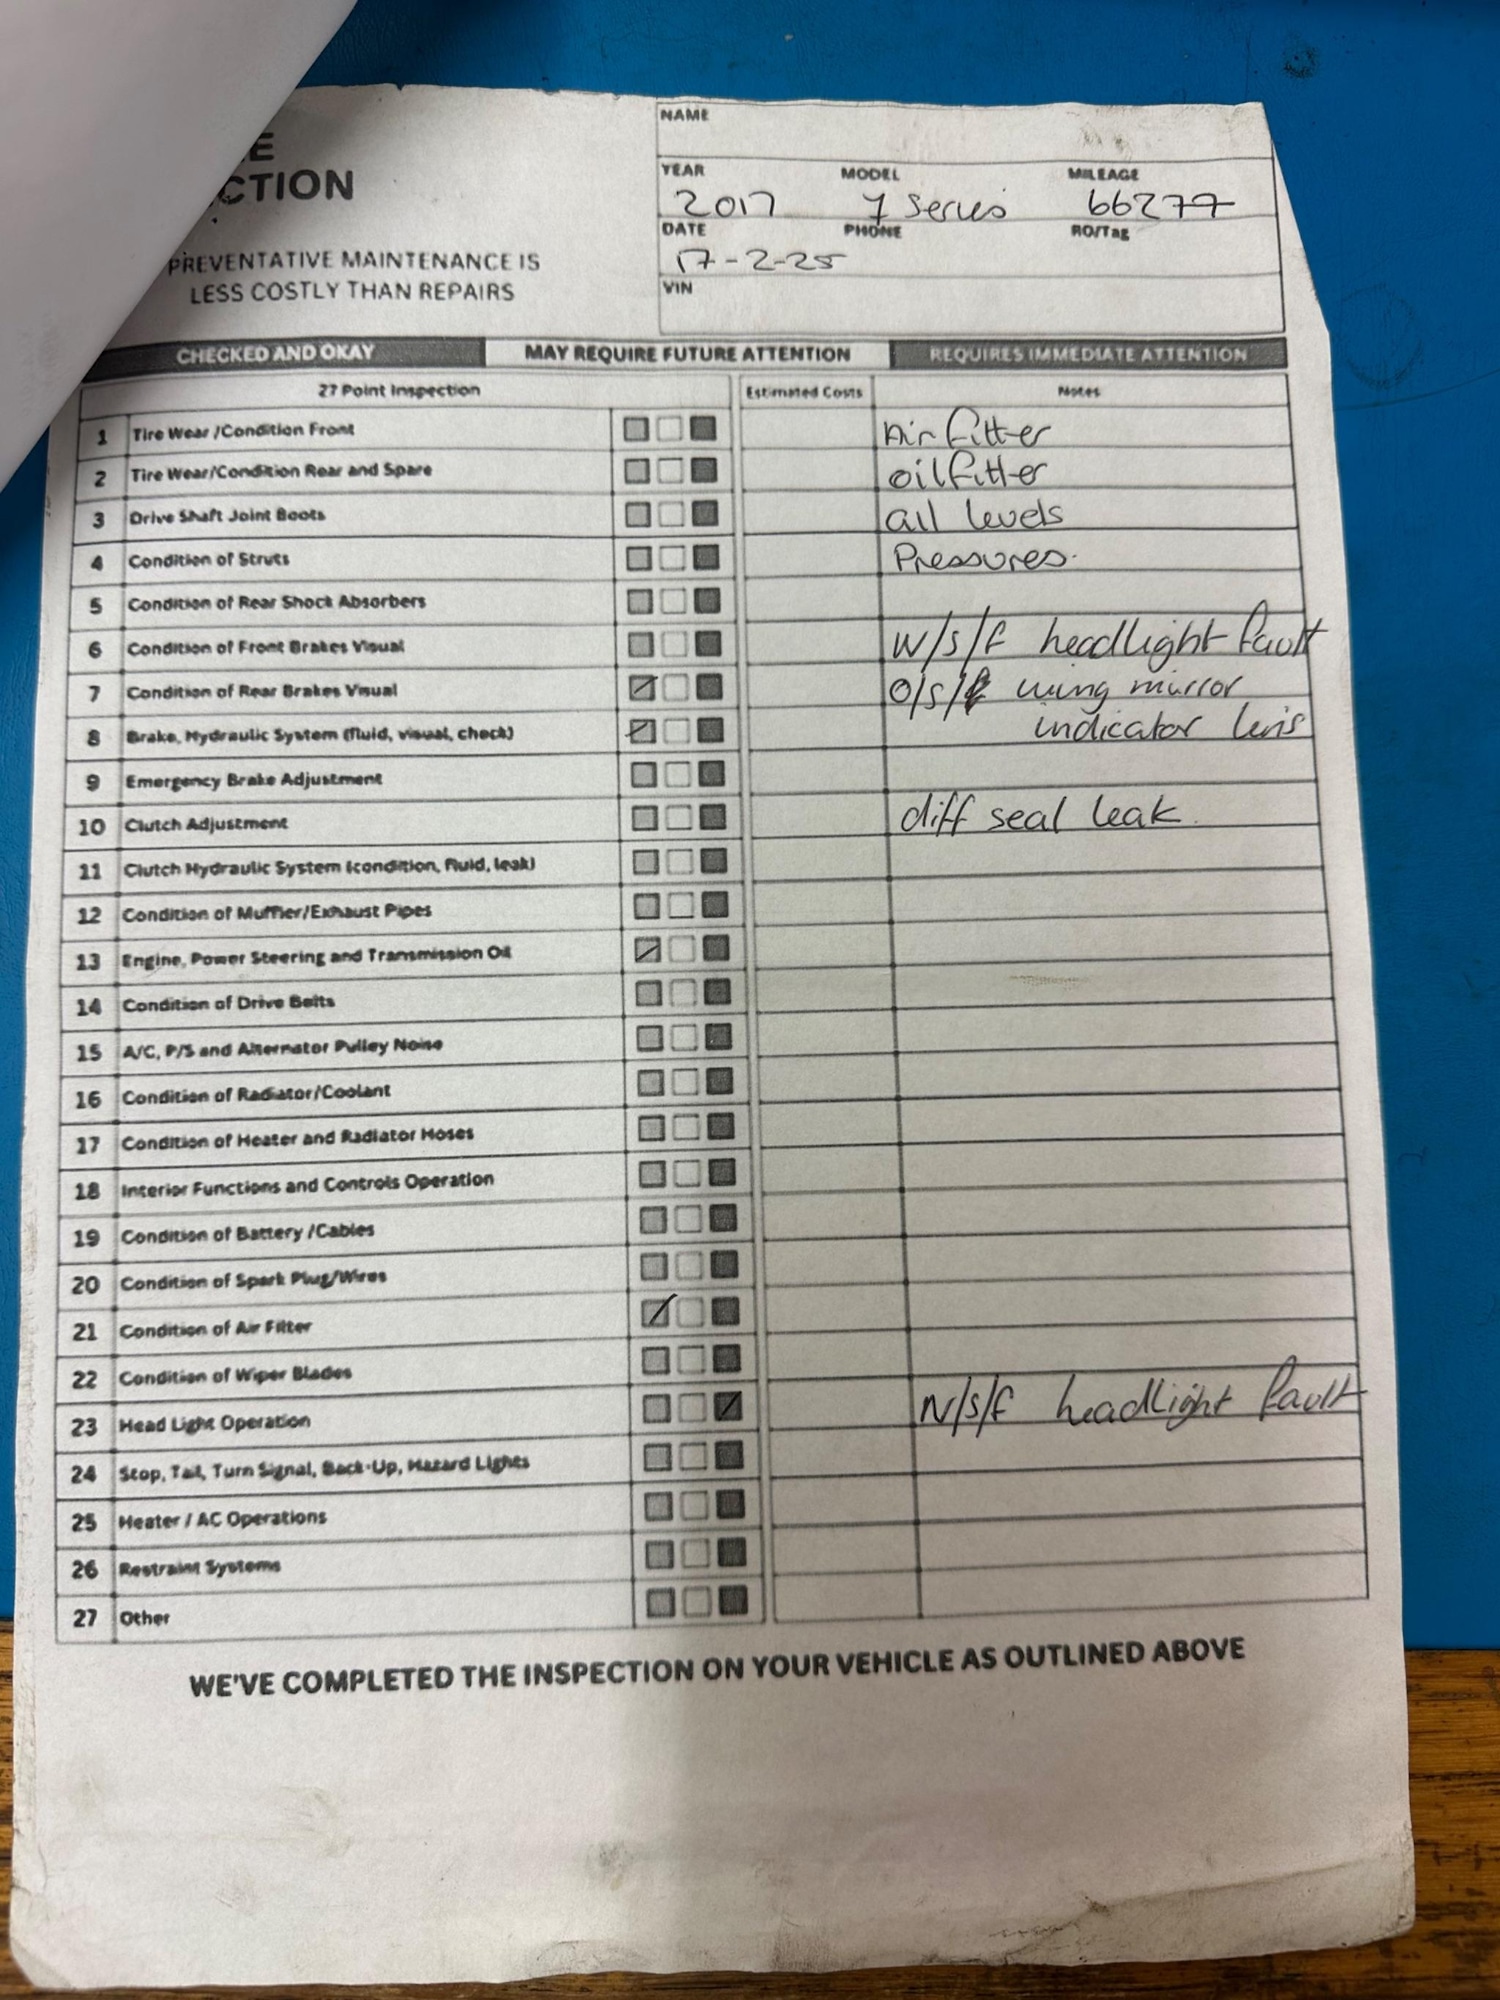 E
CTION
PREVENTATIVE MAINTENANCE IS
LESS COSTLY THAN REPAIRS
NAME
YEAR MODEL MILEAGE
2017 7 Series 66277
DATE PHONE RO/Tag
17-2-25
VIN
CHECKED AND OKAY MAY REQUIRE FUTURE ATTENTION REQUIRES IMMEDIATE ATTENTION
27 Point Inspection Estimated Costs Notes
1 Tire Wear /Condition Front Air fitter
2 Tire Wear/Condition Rear and Spare oil fitter
3 Drive Shaft Joint Boots all levels
4 Condition of Struts Pressures.
5 Condition of Rear Shock Absorbers
6 Condition of Front Brakes Visual N/s/f headlight fault
7 Condition of Rear Brakes Visual O/s/f wing mirror
8 Brake, Hydraulic System (fluid, visual, check) indicator lens
9 Emergency Brake Adjustment
10 Clutch Adjustment diff seal leak.
11 Clutch Hydraulic System (condition, fluid, leak)
12 Condition of Muffler/Exhaust Pipes
13 Engine, Power Steering and Transmission Oil
14 Condition of Drive Belts
15 A/C, P/S and Alternator Pulley Noise
16 Condition of Radiator/Coolant
17 Condition of Heater and Radiator Hoses
18 Interior Functions and Controls Operation
19 Condition of Battery /Cables
20 Condition of Spark Plug/Wires
21 Condition of Air Filter
22 Condition of Wiper Blades
23 Head Light Operation N/s/f headlight fault
24 Stop, Tail, Turn Signal, Back-Up, Hazard Lights
25 Heater / AC Operations
26 Restraint Systems
27 Other
WE'VE COMPLETED THE INSPECTION ON YOUR VEHICLE AS OUTLINED ABOVE